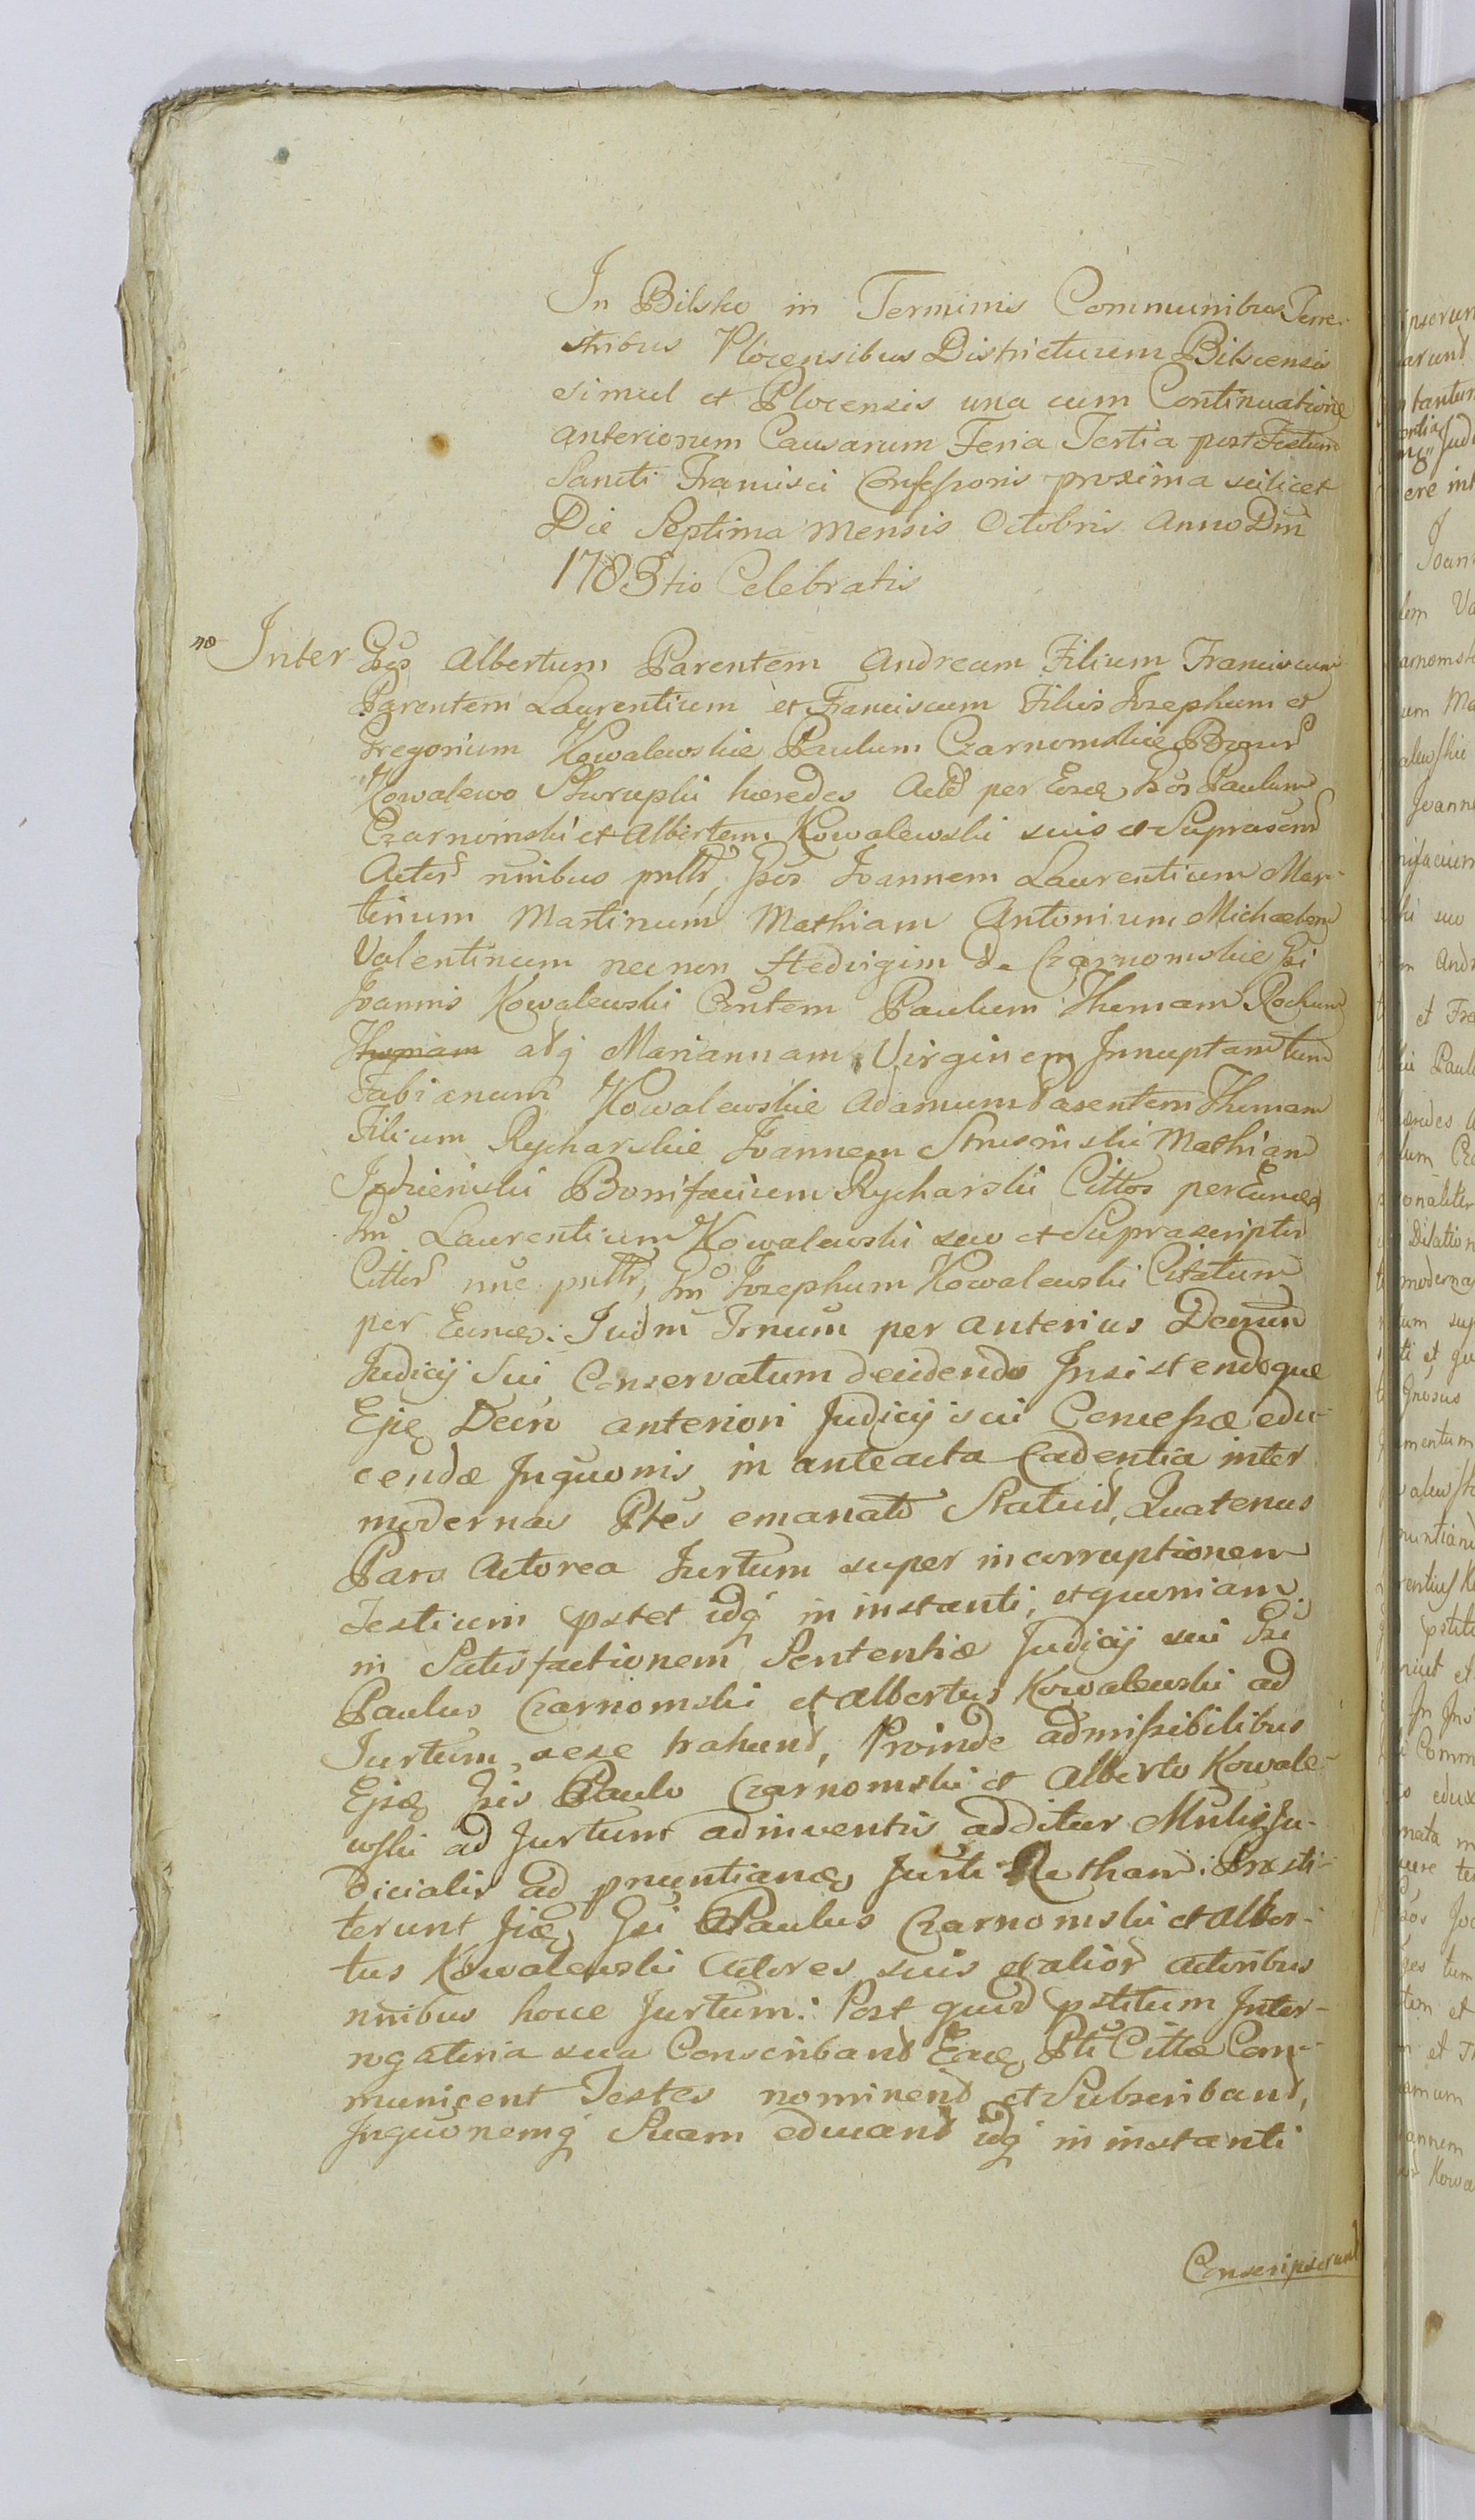 In Bilsko in Terminis Communibus Terre-
stribus Plocensibus Districtuum Bilscensis
simul et Plocensis una cum Continuatione
anteriorum Causarum Feria Tertia post Festum
Sancti Francisci Confessoris proxima scilicet
Die Septima Mensis Octobris Anno Dni
1783tio Celebratis
Inter Gŝos Albertum Parentem Andream Filium Franciscum
Parentem Laurentium et Franciscum Filios Josephum et
Gregorium Kowalewskie Paulum Czarnomskie Bonor
Kowalewo Skorupki hæredes Acto per Eosd Gŝos Paulum
Czarnomski et Albertum Kowalewski suis et Suprascrip
Actor nnibus pntt, Gŝos Joannem Laurentium Mar-
tinum Martinum Mathiam Antonium Michaelem
Valentinum necnon Hedvigim de Czarnomskie Gŝi
Joannis Kowalewski Cŏntem Paulum Thomam Rochum
Thomam adq Mariannam Virginem Innuptam tum
Fabianum Kowalewskie Adamum Parentem Thomam
Filium Rycharskie Joannem Strusinski Mathiam
Jedrieński Bonifacium Rycharski Cittos per Eund
Gŝm Laurentium Kowalewski suo et Suprascriptor
Cittor nne pntt, Gŝm Josephum Kowalewski Citatum
per Eund: Judm Trnum per anterius Decrum
Judicij Sui Conservatum decidendo Insistendoque
Ejsd Decro anteriori Judicij sui Concessæ edu-
cendæ Inquonis in anteacta Cadentia inter
modernas Ptes emanato Statuit, Quatenus
Pars Actorea Jurtum super incorruptionem
Testium pstet idq in instanti, et quoniam
in Satisfactionem Sententiæ Judicij sui Gŝi
Paulus Czarnomski et Albertus Kowalewski ad
Jurtum sese trahunt, Proinde admissibilibus
Ejsd Gŝis Paulo Czarnomski et Alberto Kowale-
wski ad Jurtum adinventis additur Mnlis Ju-
dicialis ad pnuntiand Jurti Rotham: Præsti-
terunt Iid Gŝi Paulus Czarnomski et Alber-
tus Kowalewski Actores suis et alior Actoribus
nnibus hocce Jurtum: Post quod pstitum Inter-
rogatoria sua Conscribant Eaq Pti Cittæ Com-
municent Testes nominent et Subscribant,
Inquonemq Suam educant idq in instanti
Conscripserunt